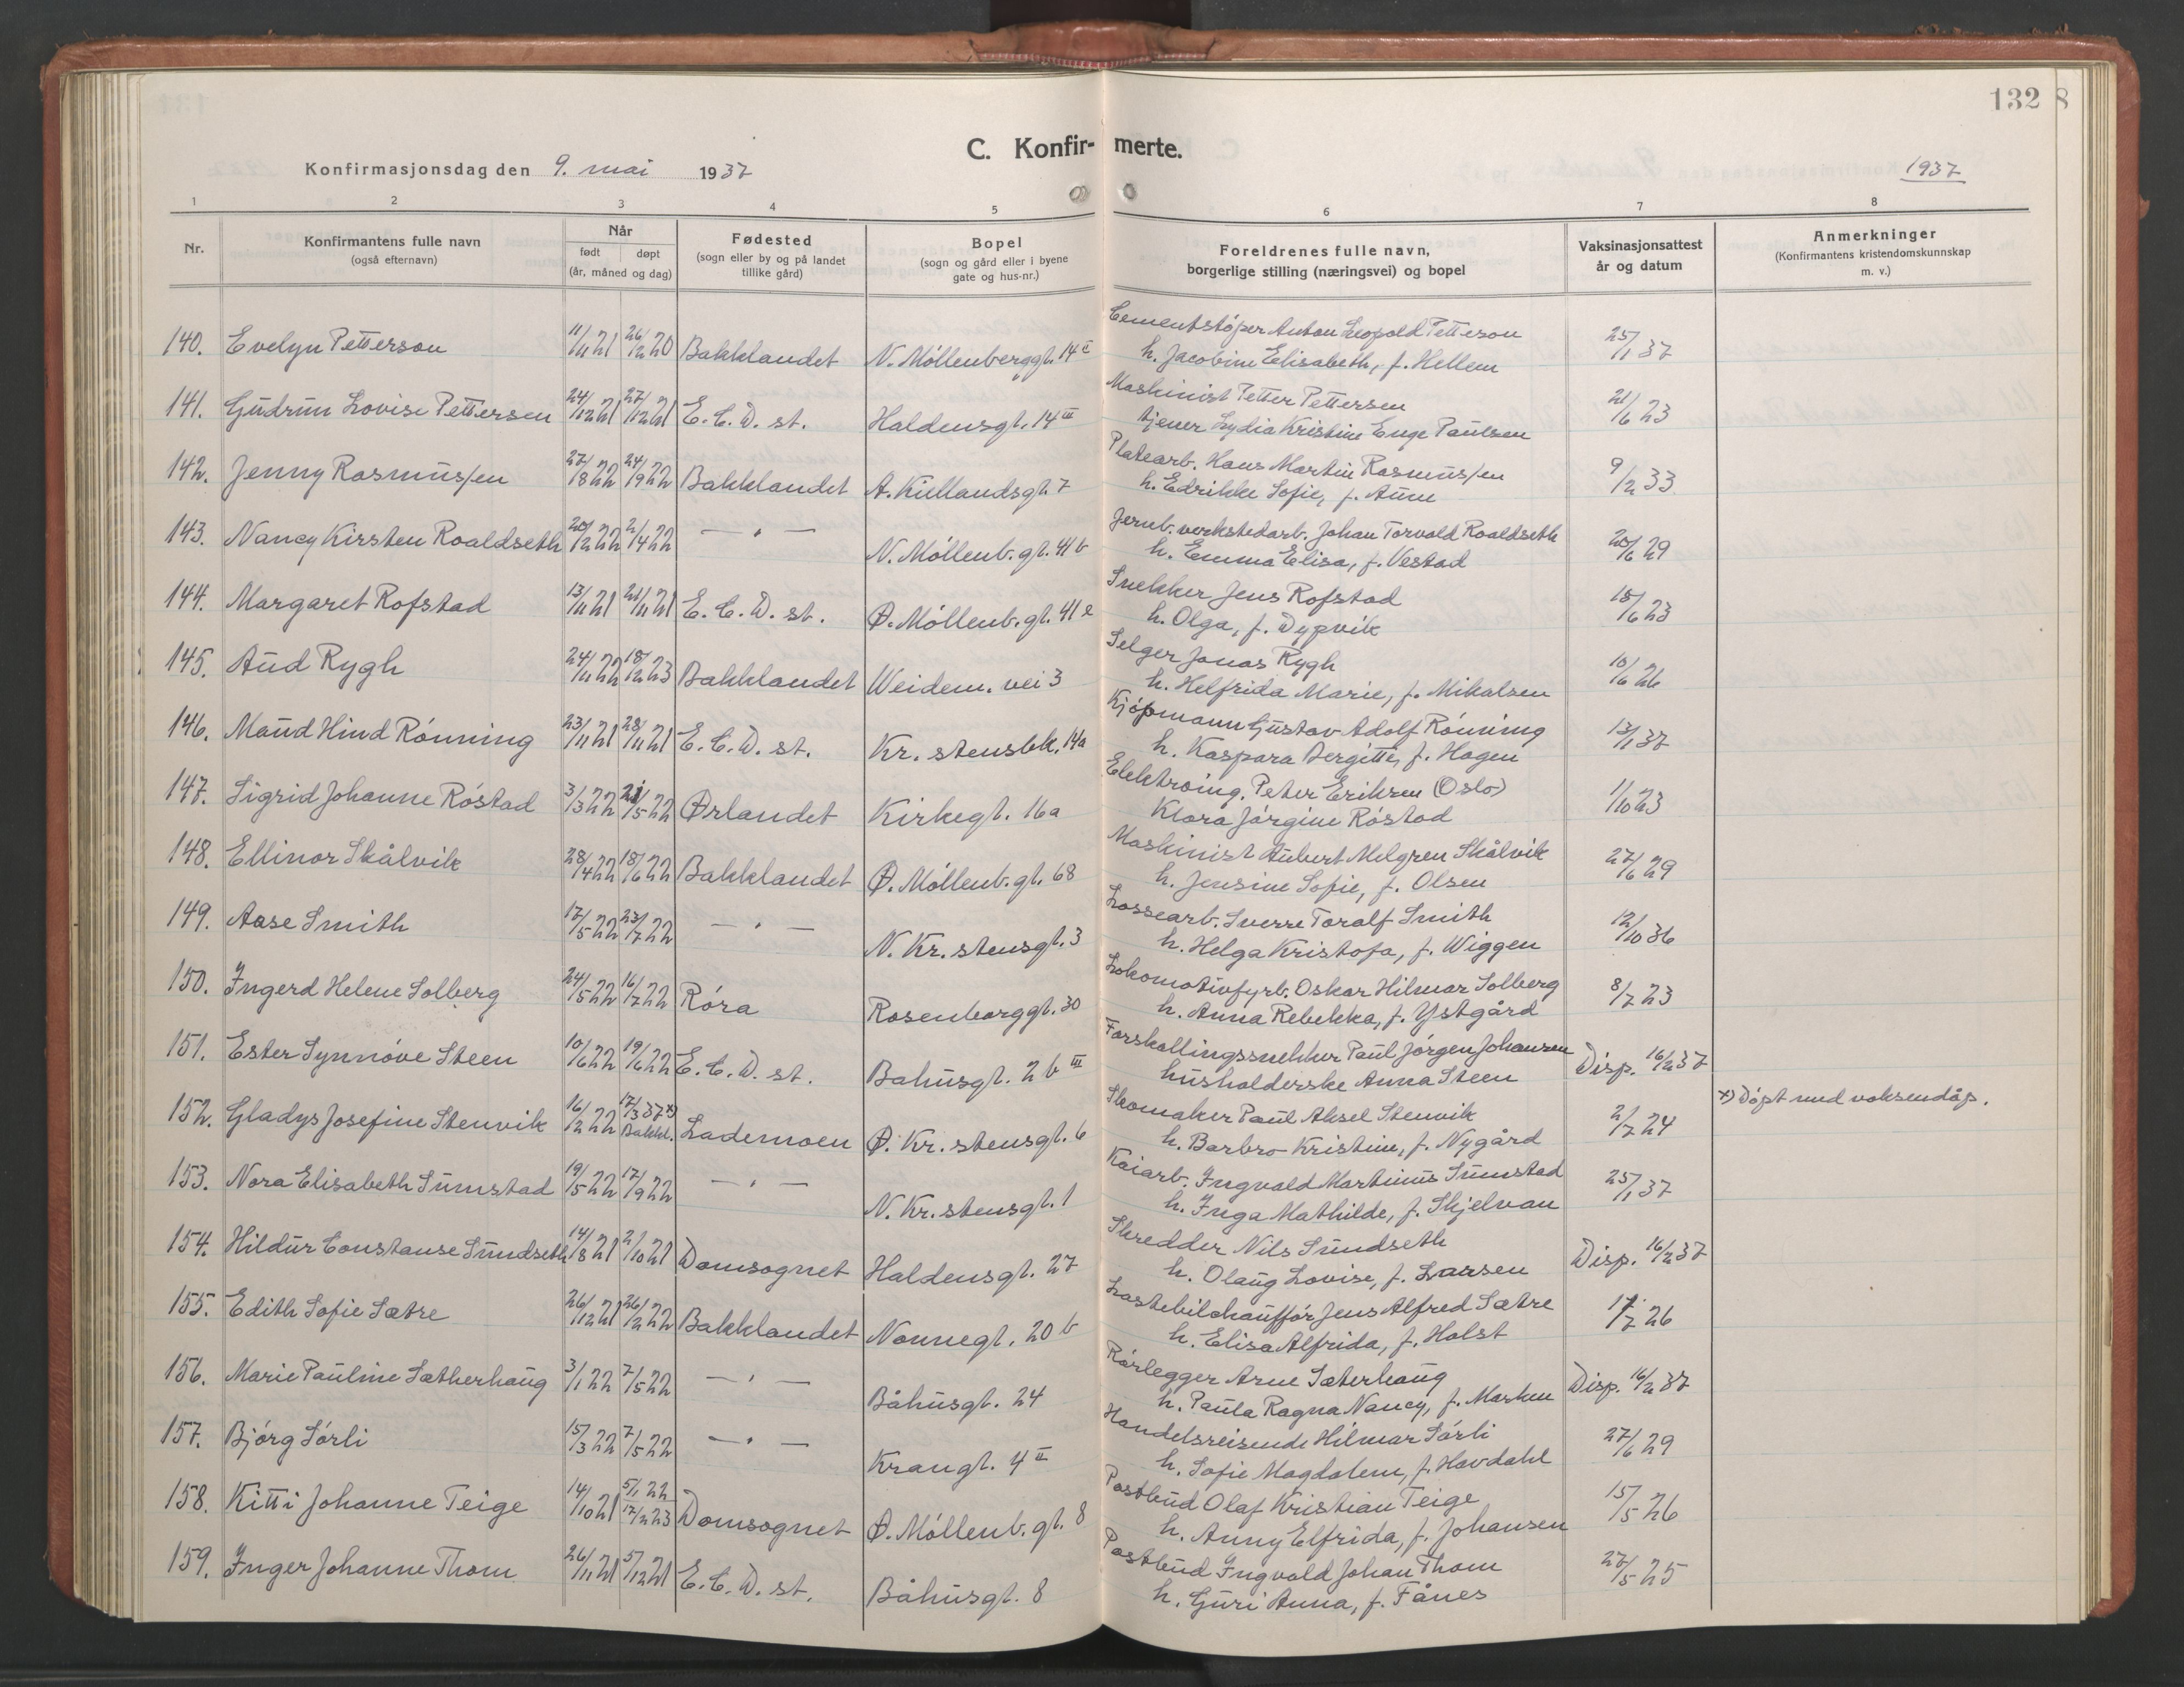 132 8
C. Konfir- merte.
Konfirmasjonsdag den 9. mai 1937
1937
1 2 3 4 5 6 7 8
Nr. Konfirmantens fulle navn (også efternavn) Når født døpt (år, måned og dag) Fødested (sogn eller by og på landet tillike gård) Bopel (sogn og gård eller i byene gate og hus-nr.) Foreldrenes fulle navn, borgerlige stilling (næringsvei) og bopel Vaksinasjonsattest år og datum Anmerkninger (Konfirmantens kristendomskunnskap m. v.)
140. Evelyn Petterson 11/11 21 26/12 20 Bakklandet N. Møllenberggt. 14 I Cementstøper Anton Leopold Petterson 25/1 37
h. Jacobine Elisabeth, f. Hellem
141. Gudrun Lovise Pettersen 24/12 21 27/12 21 E. C. D. st. Haldensgt. 14 III Maskinist Petter Pettersen 21/6 23
tjener Lydia Kristine Enge Paulsen
142. Jenny Rasmussen 27/8 22 24/9 22 Bakklandet A. Kiellandsgt. 7 Platearb. Hans Martin Rasmussen 9/2 33
h. Edrikke Sofie, f. Aune
143. Nancy Kirsten Roaldseth 20/2 22 2/4 22 — " — N. Møllenb. gt. 41 b Jernb. verkstedarb. Johan Torvald Roaldseth 20/6 29
h. Emma Elisa, f. Vestad
144. Margaret Rofstad 13/11 21 21/11 21 E. C. D. st. Ø. Møllenb. gt. 41 e Snekker Jens Rofstad 18/6 23
h. Olga, f. Dypvik
145. Aud Rygh 24/11 22 18/12 23 Bakklandet Weidem. vei 3 Selger Jonas Rygh 10/6 26
h. Helfrida Marie, f. Mikalsen
146. Maud Hind Rønning 23/11 21 28/11 21 E. C. D. st. Kr. stensbk. 14a Kjøpmann Gustav Adolf Rønning 13/1 37
h. Kaspara Bergitte, f. Hagen
147. Sigrid Johanne Røstad 3/3 22 21/5 22 Ørlandet Kirkegt. 16a Elektroing. Peter Eriksen (Oslo) 1/10 23
Klara Jørgine Røstad
148. Ellinor Skålvik 28/4 22 18/6 22 Bakklandet Ø. Møllenb. gt. 68 Maskinist Aubert Melgren Skålvik 27/6 29
h. Jensine Sofie, f. Olsen
149. Aase Smith 17/5 22 23/7 22 — " — N. Kr. stensgt. 3 Lossearb. Sverre Toralf Smith 12/10 36
h. Helga Kristofa, f. Wiggen
150. Ingerd Helene Solberg 24/5 22 16/7 22 Røra Rosenborggt. 30 Lokomotivfyrb. Oskar Hilmar Solberg 8/7 23
h. Anna Rebekka, f. Ystgård
151. Ester Synnøve Steen 10/6 22 19/6 22 E. C. D. st. Bahusgt. 2 b III Forskallingssnekker Paul Jørgen Johansen Disp. 16/2 37
husholderske Anna Steen
152. Gladys Josefine Stenvik 16/2 22 17/3 37 x) Bakkl. Lademoen Ø. Kr. stensgt. 6 Skomaker Paul Aksel Stenvik 2/7 24 x) Døpt med voksendåp.
h. Barbro Kristine, f. Nygård
153. Nora Elisabeth Sumstad 19/5 22 17/9 22 — " — N. Kr. stensgt. 1 Kaiarb. Ingvald Martinus Sumstad 25/1 37
h. Inga Mathilde, f. Skjelvan
154. Hildur Constanse Sundseth 14/8 21 2/10 21 Domsognet Haldensgt. 27 Skredder Nils Sundseth Disp. 16/2 37
h. Olaug Lovise, f. Larsen
155. Edith Sofie Sætre 26/12 21 26/2 22 Bakklandet Nonnegt. 20 b Lastebilchauffør Jens Alfred Sætre 1/7 26
h. Elisa Alfrida, f. Holst
156. Marie Pauline Sætherhaug 3/1 22 7/5 22 — " — Båhusgt. 24 Rørlegger Arne Sæterhaug Disp. 16/2 37
h. Paula Ragna Nancy, f. Marken
157. Bjørg Sørli 15/3 22 7/5 22 — " — Krangt. 4 II Handelsreisende Hilmar Sørli 27/6 29
h. Sofie Magdalene, f. Havdahl
158. Kitti Johanne Teige 14/10 21 5/1 22 17/2 23 Domsognet Ø. Møllenb. gt. 8 Postbud Olaf Kristian Teige 15/5 26
h. Anny Elfrida, f. Johansen
159. Inger Johanne Thom 26/11 21 5/12 21 E. C. D. st. Båhusgt. 8 Postbud Ingvald Johan Thom 27/5 25
h. Guri Anna, f. Fånes